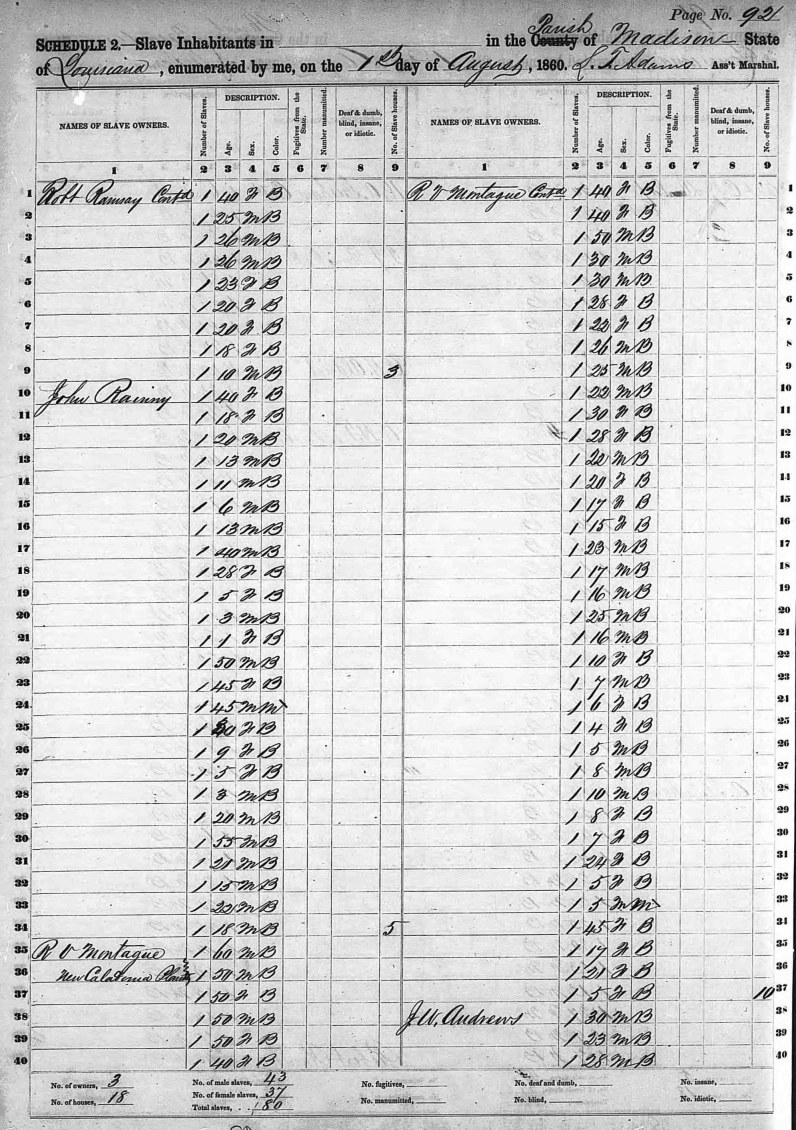 Page No. 92
SCHEDULE 2.—Slave Inhabitants in in the County Parish of Madison State
of Louisiana, enumerated by me, on the 1st day of August, 1860. L. T. Adams Ass't Marshal.
NAMES OF SLAVE OWNERS. Number of Slaves. DESCRIPTION. Age. Sex. Color. Fugitives from the State. Number manumitted. Deaf & dumb, blind, insane, or idiotic. No. of Slave houses. NAMES OF SLAVE OWNERS. Number of Slaves. DESCRIPTION. Age. Sex. Color. Fugitives from the State. Number manumitted. Deaf & dumb, blind, insane, or idiotic. No. of Slave houses.
1 2 3 4 5 6 7 8 9 1 2 3 4 5 6 7 8 9
1 Robt Ramsay Cont'd 1 40 F B R V Montague Cont'd 1 40 F B 1
2 1 25 M B 1 40 F B 2
3 1 26 M B 1 50 M B 3
4 1 26 M B 1 30 M B 4
5 1 23 F B 1 30 M B 5
6 1 20 F B 1 28 F B 6
7 1 20 F B 1 22 F B 7
8 1 18 F B 1 26 M B 8
9 1 10 M B 3 1 25 M B 9
10 John Rainny 1 40 F B 1 22 M B 10
11 1 18 F B 1 30 F B 11
12 1 20 M B 1 28 F B 12
13 1 13 M B 1 22 M B 13
14 1 11 M B 1 20 F B 14
15 1 6 M B 1 17 F B 15
16 1 13 M B 1 15 F B 16
17 1 40 M B 1 23 M B 17
18 1 28 F B 1 17 M B 18
19 1 5 F B 1 16 M B 19
20 1 3 M B 1 25 M B 20
21 1 1 F B 1 16 M B 21
22 1 50 M B 1 10 F B 22
23 1 45 F B 1 7 M B 23
24 1 45 M M 1 6 F B 24
25 1 F B 1 4 F B 25
26 1 9 F B 1 5 M B 26
27 1 5 F B 1 8 M B 27
28 1 3 M B 1 10 M B 28
29 1 20 M B 1 8 F B 29
30 1 55 M B 1 7 F B 30
31 1 21 M B 1 24 F B 31
32 1 15 M B 1 5 F B 32
33 1 22 M B 1 5 M M 33
34 1 18 M B 5 1 45 F B 34
35 R V Montague 1 60 M B 1 17 F B 35
36 New Calatonia Plantn 1 50 M B 1 21 F B 36
37 1 50 F B 1 5 F B 10 37
38 1 50 M B J. W. Andrews 1 30 M B 38
39 1 50 F B 1 23 M B 39
40 1 40 F B 1 28 M B 40
No. of owners, 3 No. of male slaves, 43 No. fugitives, No. deaf and dumb, No. insane,
No. of houses, 18 No. of female slaves, 37 No. manumitted, No. blind, No. idiotic,
Total slaves, 80